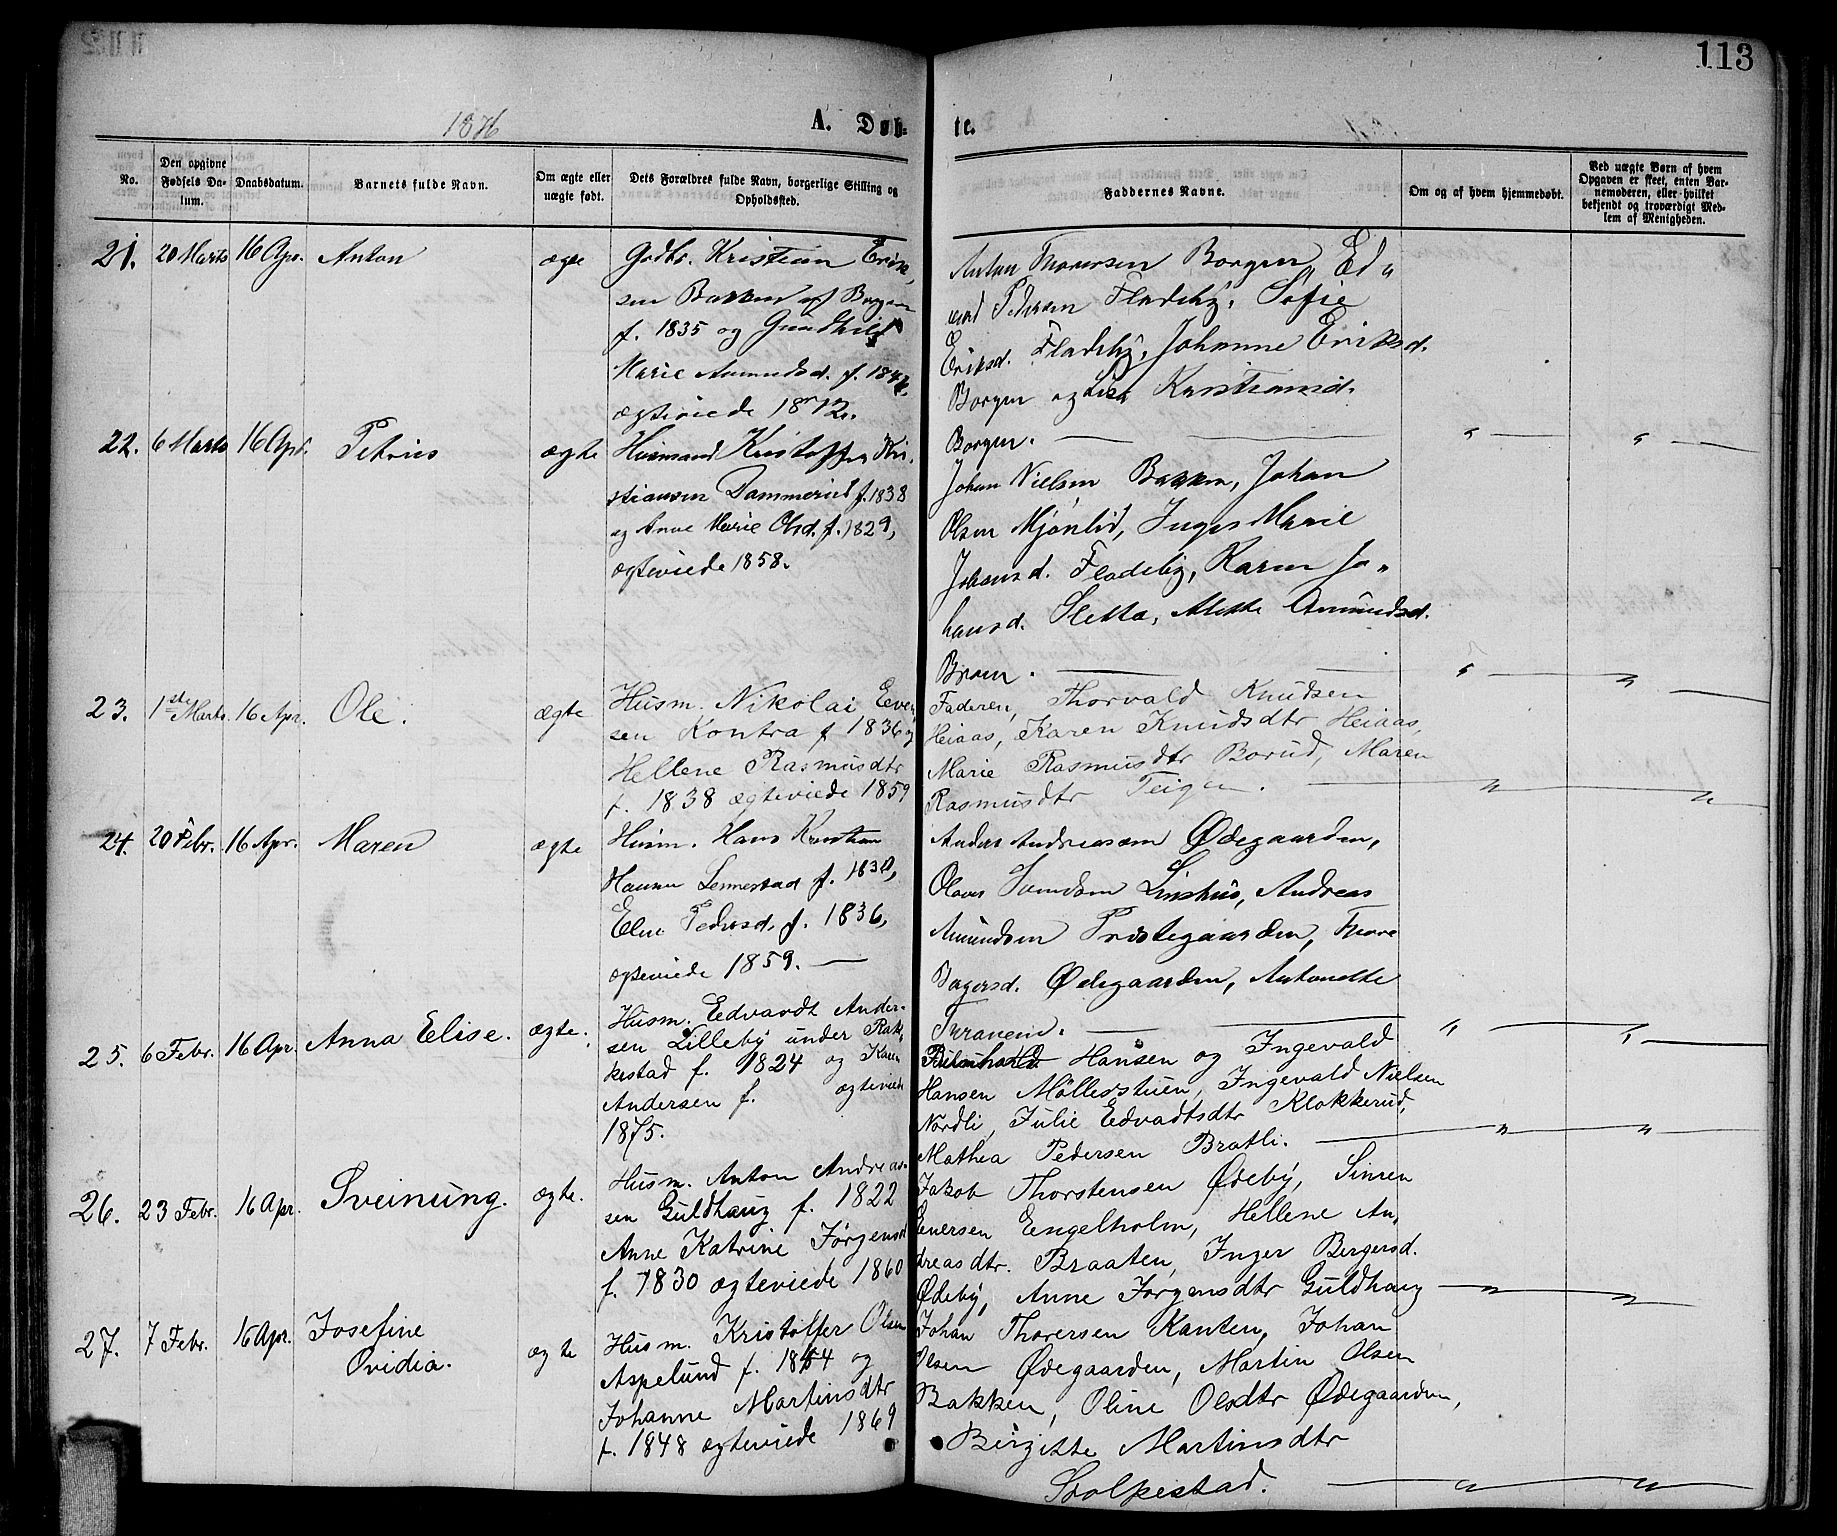 113
1876
A. Døb-
te.
No.
Den opgivne Fødsels Da-tum.
Daabsdatum.
Barnets fulde Navn.
Om ægte eller uægte født.
Dets Forældres fulde Navn, borgerlige Stilling og Opholdssted.
Faddernes Navne.
Om og af hvem hjemmedøbt.
Ved uægte Børn af hvem Opgaven er skeet, enten Bar-nemoderen, eller hvilket bekjendt og troværdigt Med-lem af Menigheden.
21. 20 Marts 16 Apr. Anton ægte
Gdbr. Kristian Erik,
sen Bakken af Borgen
f. 1835 og Gundhild
Marie Amundsd. f.
ægteviede 1872.
Anton Thoresen Borgen, Ed„
vard Pedersen Fladeby, Sofie
Eriksd. Fladeby, Johanne Eriksd.
Borgen og Kristiansd.
Borgen. — "— "—
22. 6 Marts 16 Apr. Petrus ægte
Husmand Kristoffer Kri,
stiansen Dammerud f. 1838
og Anne Marie Olsd. f. 1829,
ægteviede 1858.
Johan Nielsen Bakken, Johan
Olsen Mjønlid, Inger Marie
Johansd. Fladeby, Karen Jo„
hansd. Sletta, Mette Amundsd.
— "— "—
23. 1ste Marts 16 Apr. Ole. ægte
Husm. Nikolai Even,
sen Kontra f 1836 og
Hellene Rasmusdtr
f. 1838 ægteviede 1859
Faderen, Thorvald Knudsen
Heiaas, Karen Knudsdtr Heiaas,
Marie Rasmusdtr Borud, Maren
Rasmusdtr Teigen. — "— "—
24. 20 Febr. 16 Apr. Maren ægte
Husm. Hans Kristian
Hansen f.
Elen Pedersd. f. 1836,
ægteviede 1859. —
Anders Andreassen Ødegaarden,
Olaves Svendsen Andreas
Amundsen Prestegaarden, Thore
Ødegaarden, Antonette
— "— "—
25. 6 Febr. 16 Apr. Anna Elise. ægte.
Husm. Edvardt Ander-
sen Lilleby under Rak,
kestad f. 1824 og Karen
Andersen f. ægteviede
1875.
Hansen og Ingevald
Hansen Møllerstuen, Ingevald Nielsen
Nordli, Julie Edvadtsdtr Klokkerud,
Mathea Pedersen Bratli. — "— "—
26. 23 Febr. 16 Apr. Sveinung. ægte.
Husm. Anton Andreas-
sen Guldhaug f. 1822
Anne Katrine Jørgensd
f. 1830 ægteviede 1860
Jakob Thorstensen Ødeby, Simen
Evensen Engelholm, Hellene An,
dreasdtr. Braaten, Inger Bergersd.
Ødeby, Anne Jørgensdtr Guldhaug — "— "—
27. 7 Febr. 16 Apr. Josefine
Ovidia. ægte
Husm. Kristoffer Olsen
Aspelund f. og
Johanne Martinsdtr
f. 1848 ægteviede 1869
Johan Thoresen Kanten, Johan
Olsen Ødegaarden, Martin Olsen
Bakken, Oline Olsdtr Ødegaarden,
Birgitte Martinsdtr
Stolpestad. — "— "—